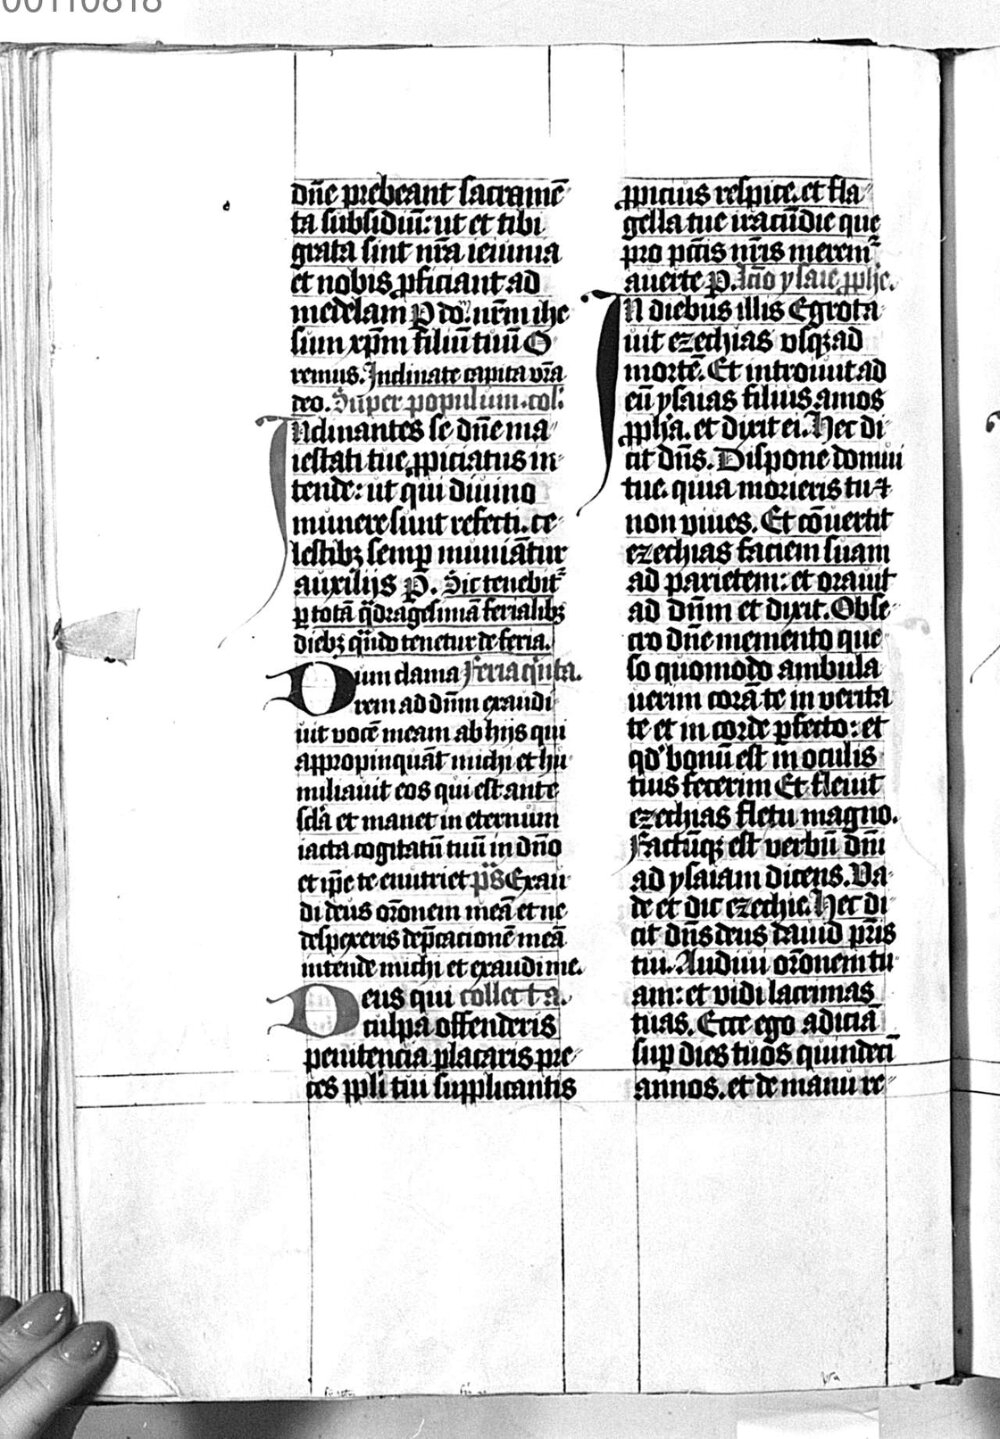 00110818
dn̄e prebeant sacramē
ta subsidiū: ut et tibi
grata sint nr̄a ieiunia
et nobis ꝓficiant ad
medelam P do. nr̄m ihe
sum xp̄m filiū tuū O
remus. Inclinate capita vr̄a
deo. Super populum. col:
INclinantes se dn̄e ma
iestati tue ꝓpiciatus in
tende: ut qui diuino
munere sunt refecti. ce
lestibꝫ semꝑ muniātur
auxilijs P. Sic tenebit᷑
ꝑ totā q̄dragesimā ferialibꝫ
diebꝫ qn̄do tenetur de feria.
Dum clama Feria q̄nta.
rem ad dn̄m exaudi
uit vocē meam ab hijs qui
appropinquāt michi et hu
miliauit eos qui est ante
scl̄a et manet in eternum
iacta cogitatū tuū in dn̄o
et ip̄e te enutriet p̄s Exau
di deus or̄onem meā et ne
despexeris dep̄cacionē meā
intende michi et exaudi me.
Deus qui collecta.
culpa offenderis
penitencia placaris pre
ces ppl̄i tui supplicantis
ꝓpicius respice. et fla
gella tue iracūdie que
pro pctīs nr̄is merem᷑
auerte P. lcīo ysaie ꝓph̄e.
IN diebus illis Egrota
uit ezechias vsqꝫ ad
mortē. Et introiuit ad
eū ysaias filius amos
ꝓph̄a. et dixit ei. Hec di
cit dn̄s. Dispone domui
tue. quia morieris tu ⁊
non viues. Et cōuertit
ezechias faciem suam
ad parietem: et orauit
ad dn̄m et dixit. Obse
cro dn̄e memento que
so quomodo ambula
uerim corā te in verita
te et in corde ꝑfecto: et
qd̓ bonū est in oculis
tuis fecerim Et fleuit
ezechias fletu magno.
Factūqꝫ est verbū dn̄i
ad ysaiam dicens. Va
de et dic ezechie. Hec di
cit dn̄s deus dauid pr̄is
tui. Audiui or̄onem tu
am: et vidi lacrimas
tuas. Ecce ego adiciā
suꝑ dies tuos quindecī
annos. et de manu re